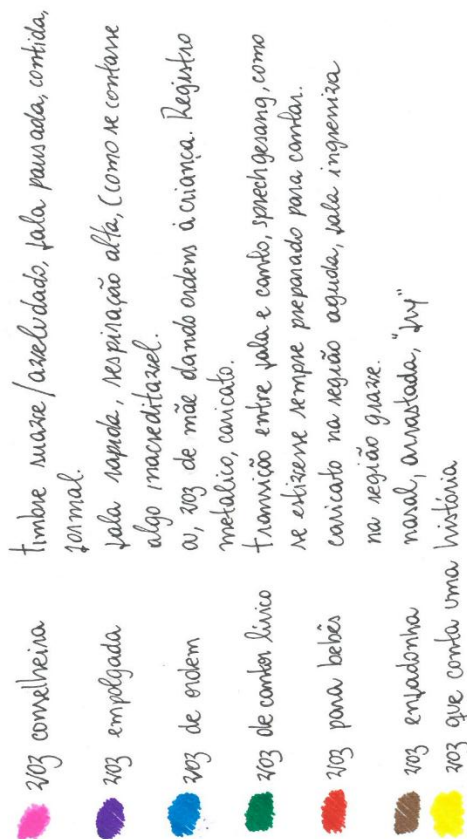 voz conselheira timbre suave/aveludado, fala pausada, contida,
formal.
voz empolgada fala rapida, respiração alta, (como se contasse
algo inacreditavel.
voz de ordem ou, voz de mãe dando ordens à criança. Registro
metalico, caricato.
voz de cantor lírico transição entre fala e canto, sprechgesang, como
se estivesse sempre preparado para cantar.
voz para bebês caricato na região aguda, fala
na região grave.
voz enfadonha nasal, arrastada, "fry"
voz que conta uma história